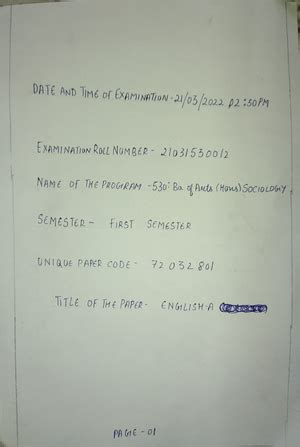 DATE AND TIME OF EXAMINATION - 21/03/2022 02:30PM
EXAMINATION ROLL NUMBER - 21031530012
NAME OF THE PROGRAM - 530: Ba of Arts (Hons) SOCIOLOGY
SEMESTER - FIRST SEMESTER
UNIQUE PAPER CODE - 72032801
TITLE OF THE PAPER - ENGLISH-A
PAGE - 01